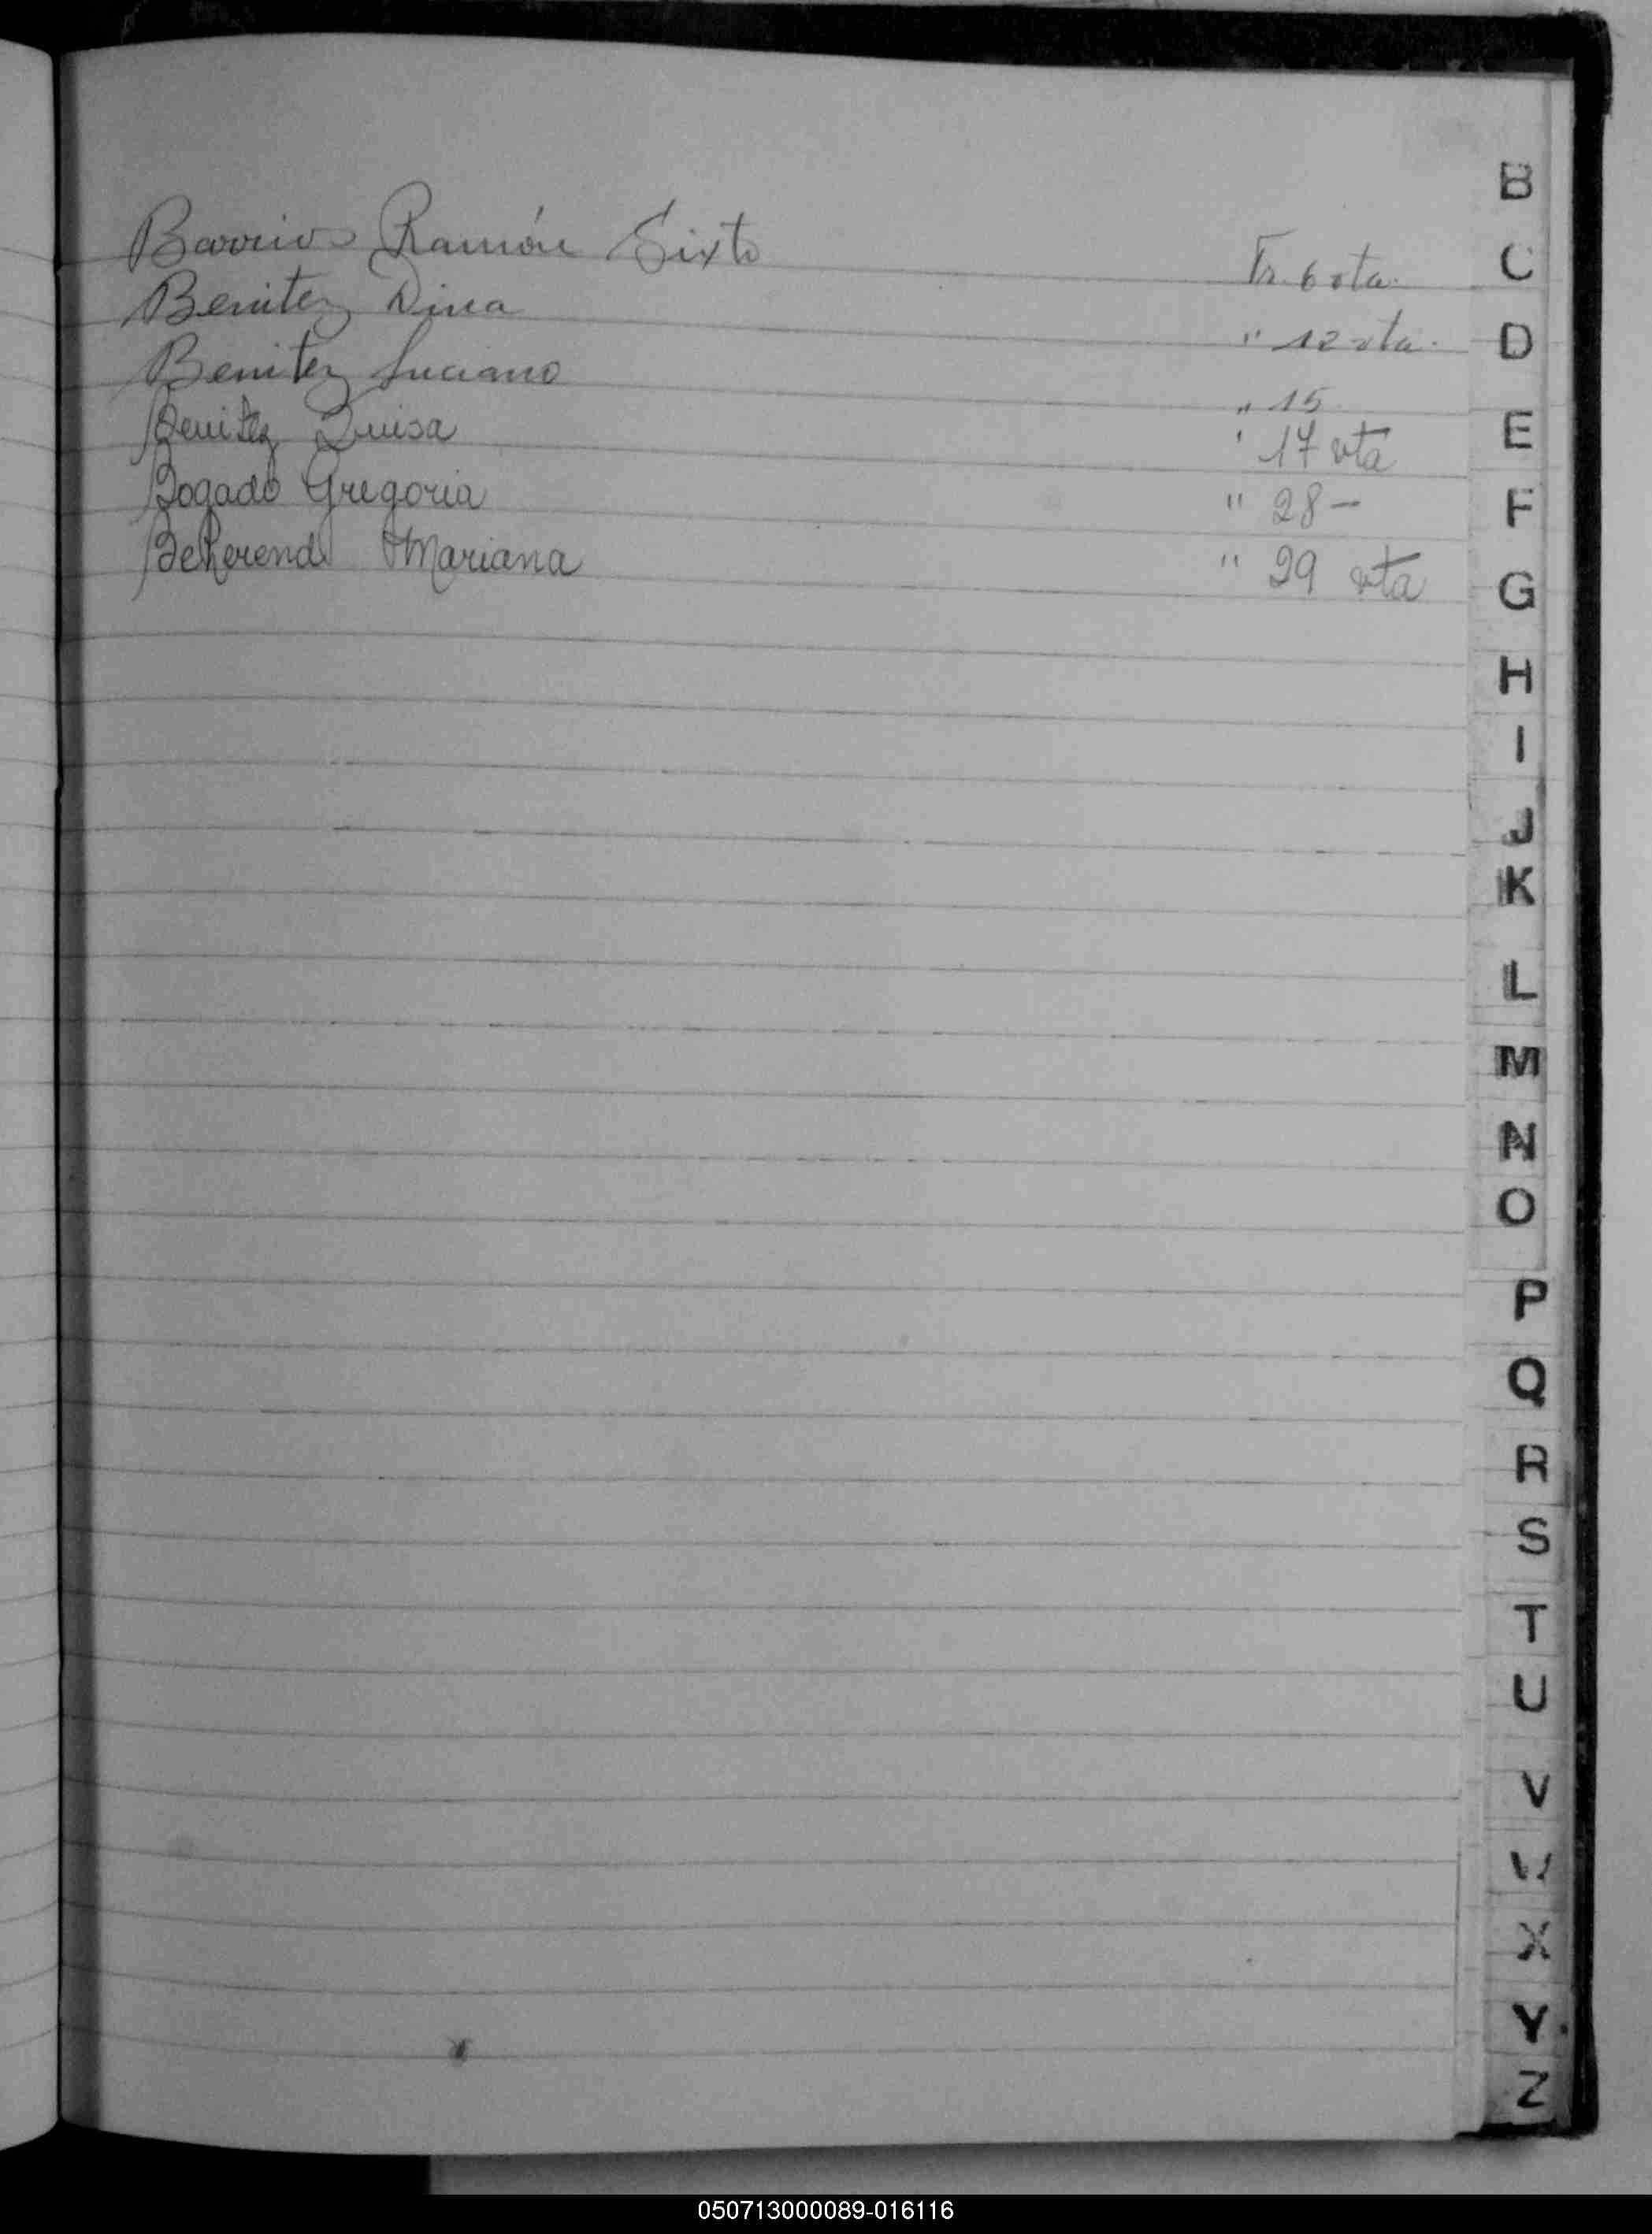 B
Barrios Ramón Sixto Fr. 6 vta.
C
Benitez Dina " 12 vta.
D
Benitez Luciano " 15
E
Benitez Luisa " 17 vta
Bogado Gregoria " 28 -
F
Beherend Mariana " 29 vta
G
H
I
J
K
L
M
N
O
P
Q
R
S
T
U
V
W
X
Y
Z
050713000089-016116